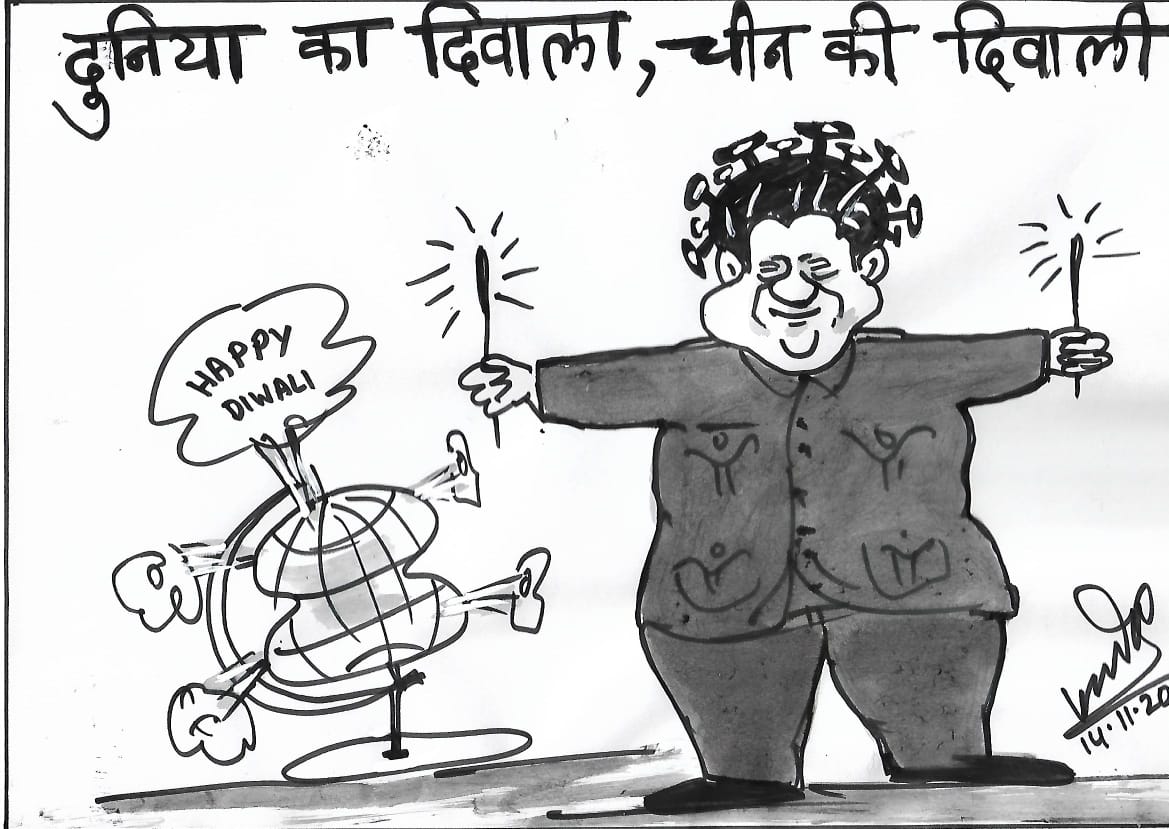 दुनिया का दिवाला, चीन की दिवाली
HAPPY
DIWALI
14.11.20